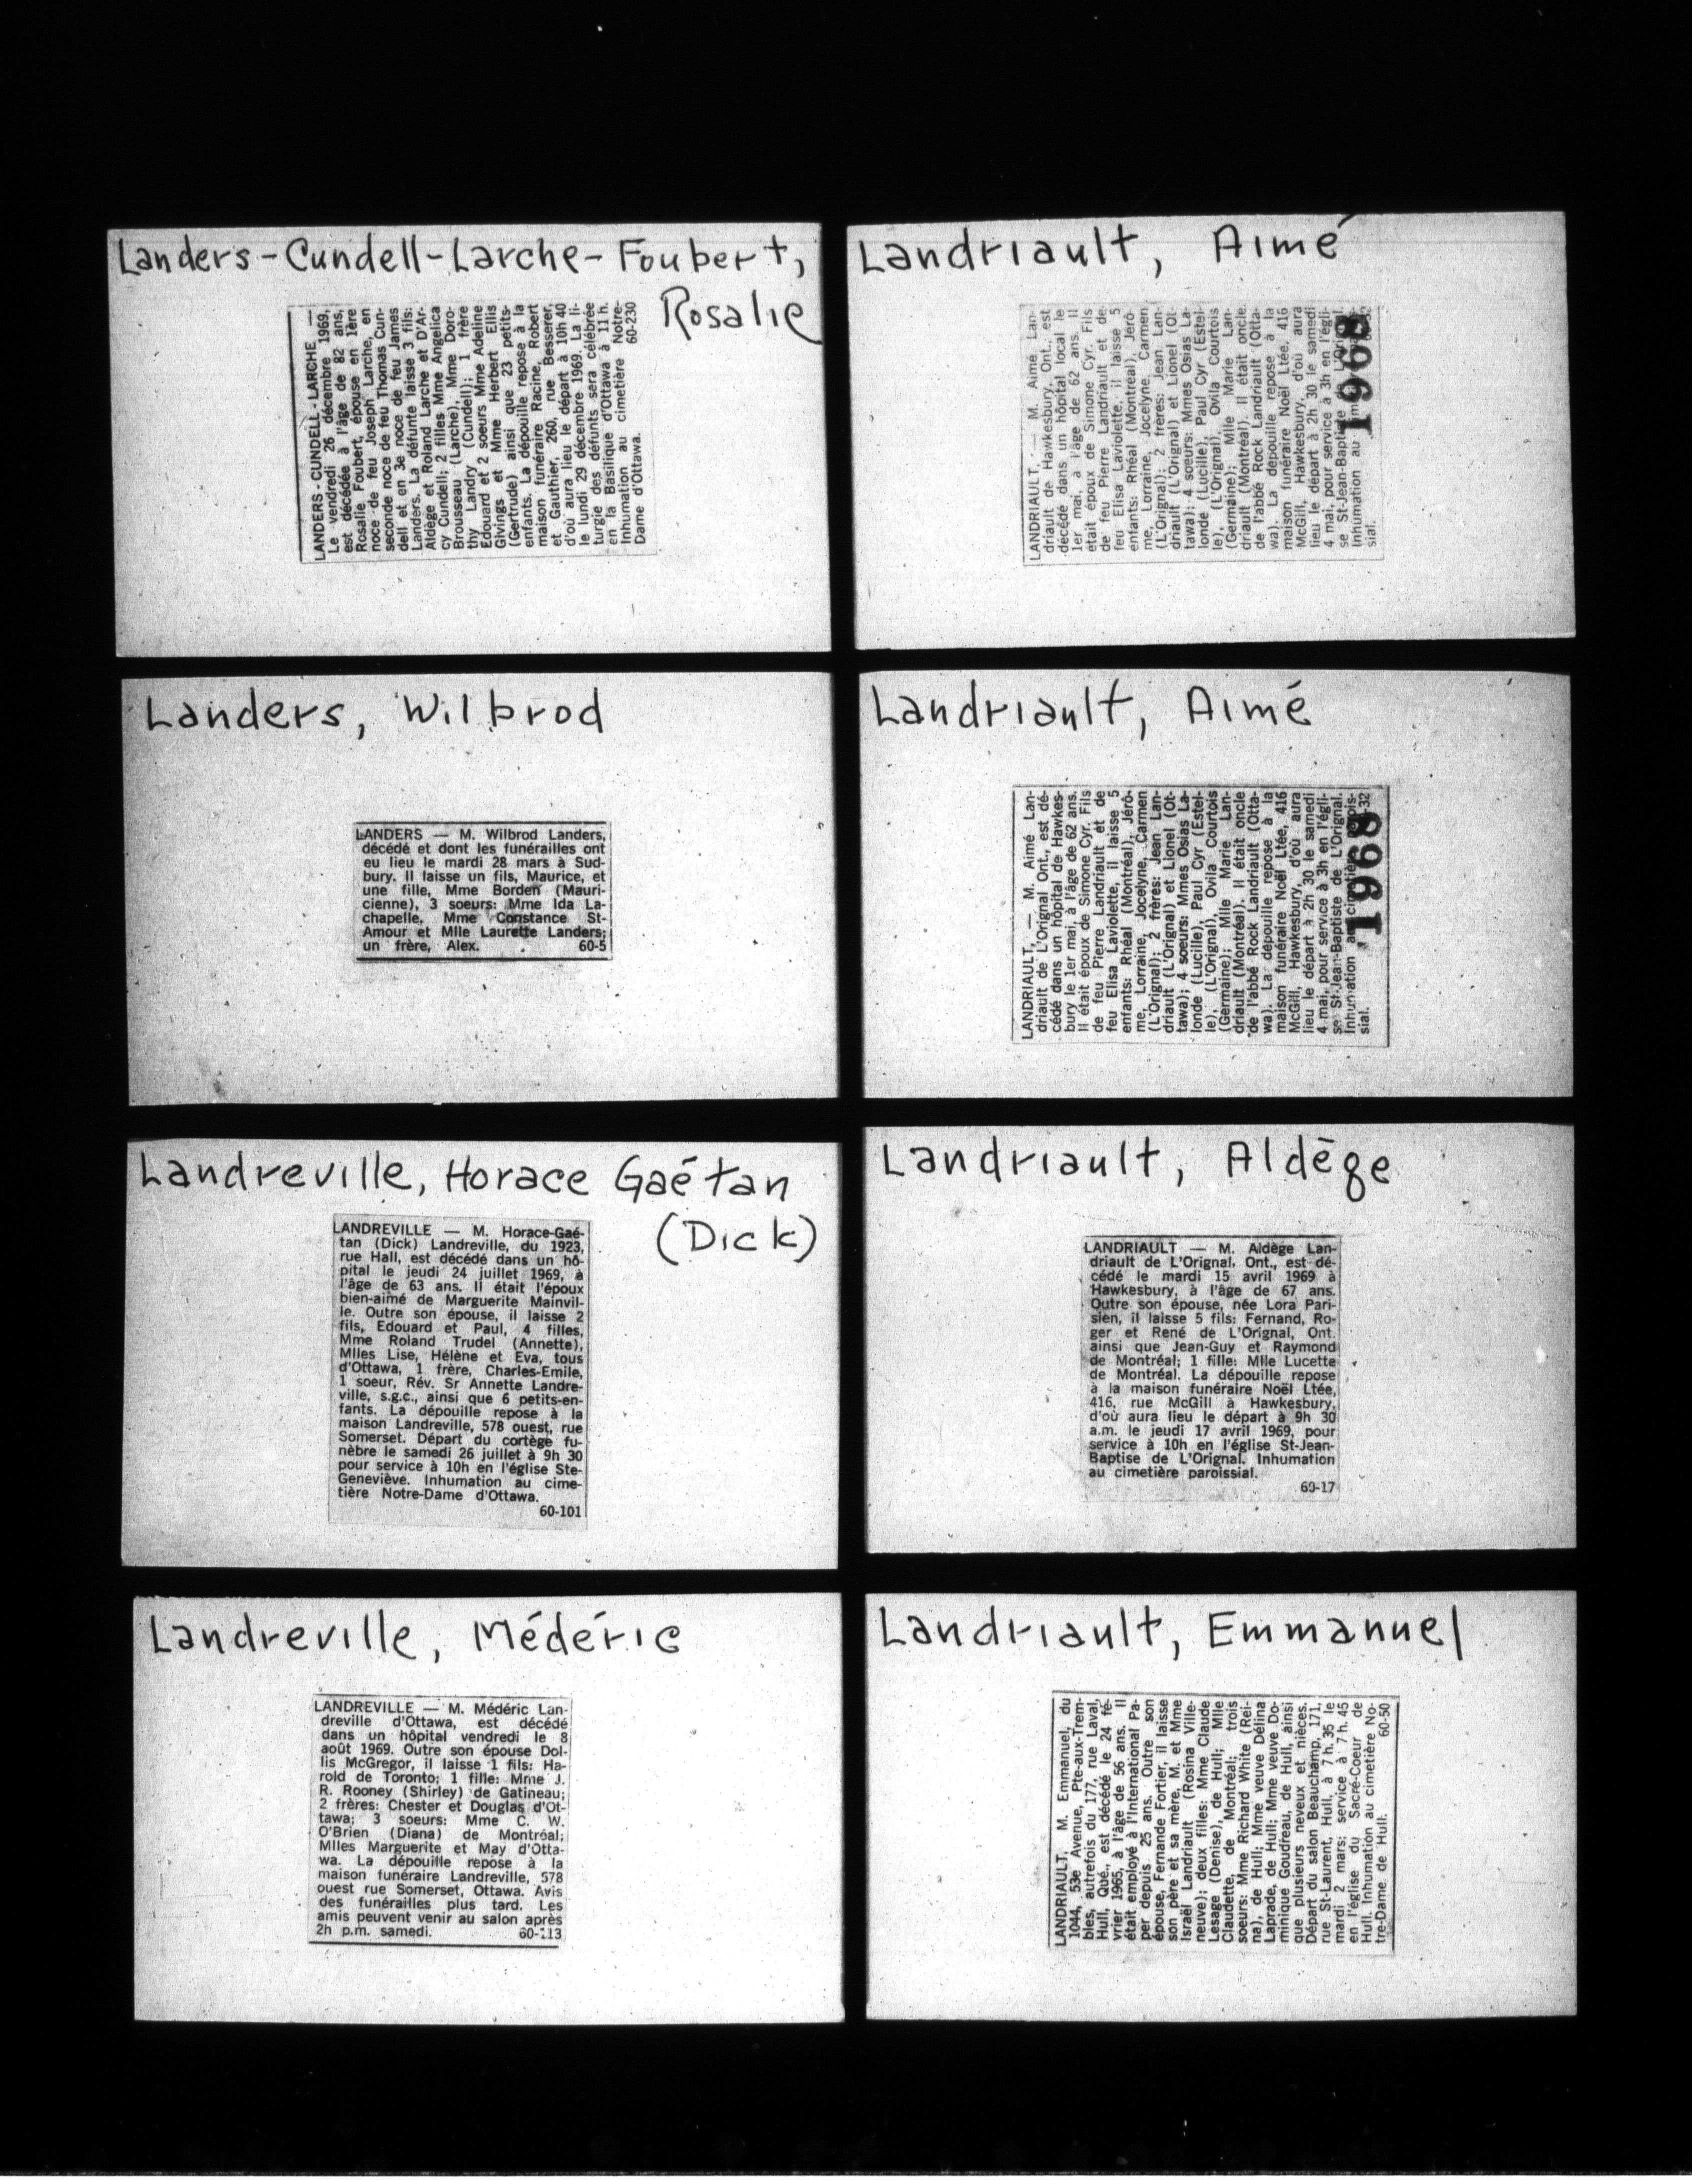 Landers-Cundell-Larche-Foubert,
Rosalie
LANDERS - CUNDELL - LARCHE —
Le vendredi 26 décembre 1969,
est décédée à l'âge de 82 ans,
Rosalie Foubert, épouse en 1ère
noce de feu Joseph Larche, en
seconde noce de feu Thomas Cun-
dell et en 3e noce de feu James
Landers. La défunte laisse 3 fils:
Aldège et Roland Larche et D'Ar-
cy Cundell; 2 filles Mme Angelica
Brousseau (Larche), Mme Doro-
thy Landry (Cundell); 1 frère
Edouard et 2 soeurs Mme Adeline
Givings et Mme Herbert Ellis
(Gertrude) ainsi que 23 petits-
enfants. La dépouille repose à la
maison funéraire Racine, Robert
et Gauthier, 260, rue Besserer,
d'où aura lieu le départ à 10h 40
le lundi 29 décembre 1969. La li-
turgie des défunts sera célébrée
en la Basilique d'Ottawa à 11 h.
Inhumation au cimetière Notre-
Dame d'Ottawa. 60-230
Landriault, Aimé
LANDRIAULT. — M. Aimé Lan-
driault de Hawkesbury, Ont., est
décédé dans un hôpital local le
1er mai, à l'âge de 62 ans. Il
était époux de Simone Cyr. Fils
de feu Pierre Landriault et de
feu Elisa Laviolette, il laisse 5
enfants: Rhéal (Montréal), Jérô-
me, Lorraine, Jocelyne, Carmen
(L'Orignal); 2 frères: Jean Lan-
driault (L'Orignal) et Lionel (Ot-
tawa); 4 soeurs: Mmes Osias La-
londe (Lucille), Paul Cyr (Estel-
le), (L'Orignal), Ovila Courtois
(Germaine); Mlle Marie Lan-
driault (Montréal). Il était oncle
de l'abbé Rock Landriault (Otta-
wa). La dépouille repose à la
maison funéraire Noël Ltée, 416
McGill, Hawkesbury, d'où aura
lieu le départ à 2h 30 le samedi
4 mai, pour service à 3h en l'égli-
se St-Jean-Baptiste de L'Orignal.
Inhumation au
sial.
1968
Landers, Wilbrod
LANDERS — M. Wilbrod Landers,
décédé et dont les funérailles ont
eu lieu le mardi 28 mars à Sud-
bury. Il laisse un fils, Maurice, et
une fille, Mme Borden (Mauri-
cienne), 3 soeurs: Mme Ida La-
chapelle, Mme Constance St-
Amour et Mlle Laurette Landers;
un frère, Alex. 60-5
Landriault, Aimé
LANDRIAULT, — M. Aimé Lan-
driault de L'Orignal Ont., est dé-
cédé dans un hôpital de Hawkes-
bury le 1er mai, à l'âge de 62 ans.
Il était époux de Simone Cyr. Fils
de feu Pierre Landriault et de
feu Elisa Laviolette, il laisse 5
enfants: Rhéal (Montréal), Jérô-
me, Lorraine, Jocelyne, Carmen
(L'Orignal); 2 frères: Jean Lan-
driault (L'Orignal) et Lionel (Ot-
tawa); 4 soeurs: Mmes Osias La-
londe (Lucille), Paul Cyr (Estel-
le), (L'Orignal), Ovila Courtois
(Germaine); Mlle Marie Lan-
driault (Montréal). Il était oncle
de l'abbé Rock Landriault (Otta-
wa). La dépouille repose à la
maison funéraire Noël Ltée, 416
McGill, Hawkesbury, d'où aura
lieu le départ à 2h 30 le samedi
4 mai, pour service à 3h en l'égli-
se St-Jean-Baptiste de L'Orignal.
Inhumation au cimetière parois-
sial.
1968
Landreville, Horace Gaétan
(Dick)
LANDREVILLE — M. Horace-Gaé-
tan (Dick) Landreville, du 1923,
rue Hall, est décédé dans un hô-
pital le jeudi 24 juillet 1969, à
l'âge de 63 ans. Il était l'époux
bien-aimé de Marguerite Mainvil-
le. Outre son épouse, il laisse 2
fils, Edouard et Paul, 4 filles,
Mme Roland Trudel (Annette),
Mlles Lise, Hélène et Eva, tous
d'Ottawa, 1 frère, Charles-Emile,
1 soeur, Rév. Sr Annette Landre-
ville, s.g.c., ainsi que 6 petits-en-
fants. La dépouille repose à la
maison Landreville, 578 ouest, rue
Somerset. Départ du cortège fu-
nèbre le samedi 26 juillet à 9h 30
pour service à 10h en l'église Ste-
Geneviève. Inhumation au cime-
tière Notre-Dame d'Ottawa.
60-101
Landriault, Aldège
LANDRIAULT — M. Aldège Lan-
driault de L'Orignal, Ont., est dé-
cédé le mardi 15 avril 1969 à
Hawkesbury, à l'âge de 67 ans.
Outre son épouse, née Lora Pari-
sien, il laisse 5 fils: Fernand, Ro-
ger et René de L'Orignal, Ont.
ainsi que Jean-Guy et Raymond
de Montréal; 1 fille: Mlle Lucette
de Montréal. La dépouille repose
à la maison funéraire Noël Ltée,
416, rue McGill à Hawkesbury,
d'où aura lieu le départ à 9h 30
a.m. le jeudi 17 avril 1969, pour
service à 10h en l'église St-Jean-
Baptise de L'Orignal. Inhumation
au cimetière paroissial.
60-17
Landreville, Médéric
LANDREVILLE — M. Médéric Lan-
dreville d'Ottawa, est décédé
dans un hôpital vendredi le 8
août 1969. Outre son épouse Dol-
lis McGregor, il laisse 1 fils: Ha-
rold de Toronto; 1 fille: Mme J.
R. Rooney (Shirley) de Gatineau;
2 frères: Chester et Douglas d'Ot-
tawa; 3 soeurs: Mme C. W.
O'Brien (Diana) de Montréal;
Mlles Marguerite et May d'Otta-
wa. La dépouille repose à la
maison funéraire Landreville, 578
ouest rue Somerset, Ottawa. Avis
des funérailles plus tard. Les
amis peuvent venir au salon après
2h p.m. samedi. 60-113
Landriault, Emmanuel
LANDRIAULT, M. Emmanuel, du
1044, 53e Avenue, Pte-aux-Trem-
bles, autrefois du 177, rue Laval,
Hull, Qué., est décédé le 24 fé-
vrier 1965, à l'âge de 56 ans. Il
était employé à l'International Pa-
per depuis 25 ans. Outre son
épouse, Fernande Fortier, il laisse
son père et sa mère, M. et Mme
Israël Landriault (Rosina Ville-
neuve); deux filles: Mme Claude
Lesage (Denise), de Hull; Mlle
Claudette, de Montréal; trois
soeurs: Mme Richard White (Rei-
na), de Hull; Mme veuve Délina
Laprade, de Hull; Mme veuve Do-
minique Goudreau, de Hull, ainsi
que plusieurs neveux et nièces.
Départ du salon Beauchamp, 171,
rue St-Laurent, Hull, à 7 h. 35 le
mardi 2 mars; service à 7 h. 45
en l'église du Sacré-Coeur de
Hull. Inhumation au cimetière No-
tre-Dame de Hull. 60-50